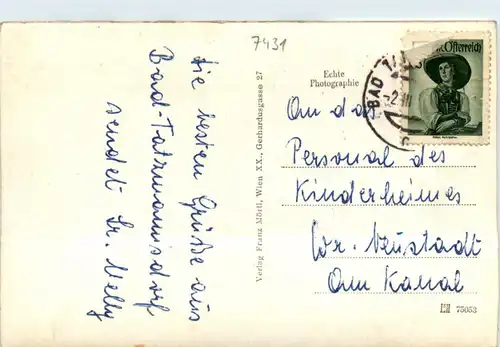 7431
die besten Grüße aus
Bad-Tatzmannsdorf
sendet Sr. Nelly
Verlag Franz Mörtl, Wien XX., Gerhardusgasse 27
Echte
Photographie
Österreich
BAD
An das
Personal des
Kinderheimes
Wr. Neustadt
Am Kanal
75053